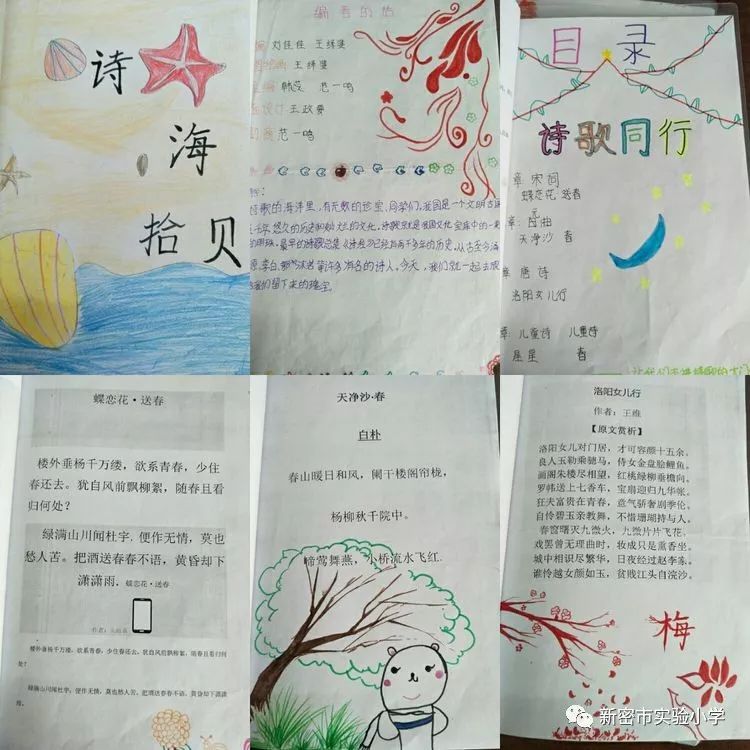 诗
海
拾贝
编者的话
刘佳佳 王绎雯
王绎雯
韩苡 范一鸣
设计 王政豪
范一鸣
诗歌的海洋里，有无数的珍宝，同学们，我国是一个文明古
悠久的历史和灿烂的文化，诗歌就是我国文化宝库中的一
明珠，最早的诗歌总集《诗经》已经有两千多年的历史，从古至今
李白、
等许多有名的诗人。今天，我们就一起去
们留下来的瑰宝
目录
诗歌同行
章 宋词
蝶恋花 送春
章：元曲
天净沙 春
章 唐诗
洛阳女儿行
章：儿童诗 儿童诗
星星 春
蝶恋花·送春
楼外垂杨千万缕，欲系青春，少住
春还去。犹自风前飘柳絮，随春且看
归何处？
绿满山川闻杜宇，便作无情，莫也
愁人苦。把酒送春春不语，黄昏却下
潇潇雨. 蝶恋花·送春
作者：朱淑真
楼外垂杨千万缕，欲系青春，少住春还去。犹自风前飘柳絮，随春且看归何处？
绿满山川闻杜宇，便作无情，莫也愁人苦。把酒送春春不语，黄昏却下潇潇雨。
天净沙·春
白朴
春山暖日和风，阑干楼阁帘栊，
杨柳秋千院中。
啼莺舞燕，小桥流水飞红.
洛阳女儿行
作者：王维
【原文赏析】
洛阳女儿对门居，才可容颜十五余。
良人玉勒乘骢马，侍女金盘脍鲤鱼。
画阁朱楼尽相望，红桃绿柳垂檐向。
罗帏送上七香车，宝扇迎归九华帐。
狂夫富贵在青春，意气骄奢剧季伦。
自怜碧玉亲教舞，不惜珊瑚持与人。
春窗曙灭九微火，九微片片飞花。
戏罢曾无理曲时，妆成只是熏香坐。
城中相识尽繁华，日夜经过赵李家。
谁怜越女颜如玉，贫贱江头自浣沙。
梅
新密市实验小学